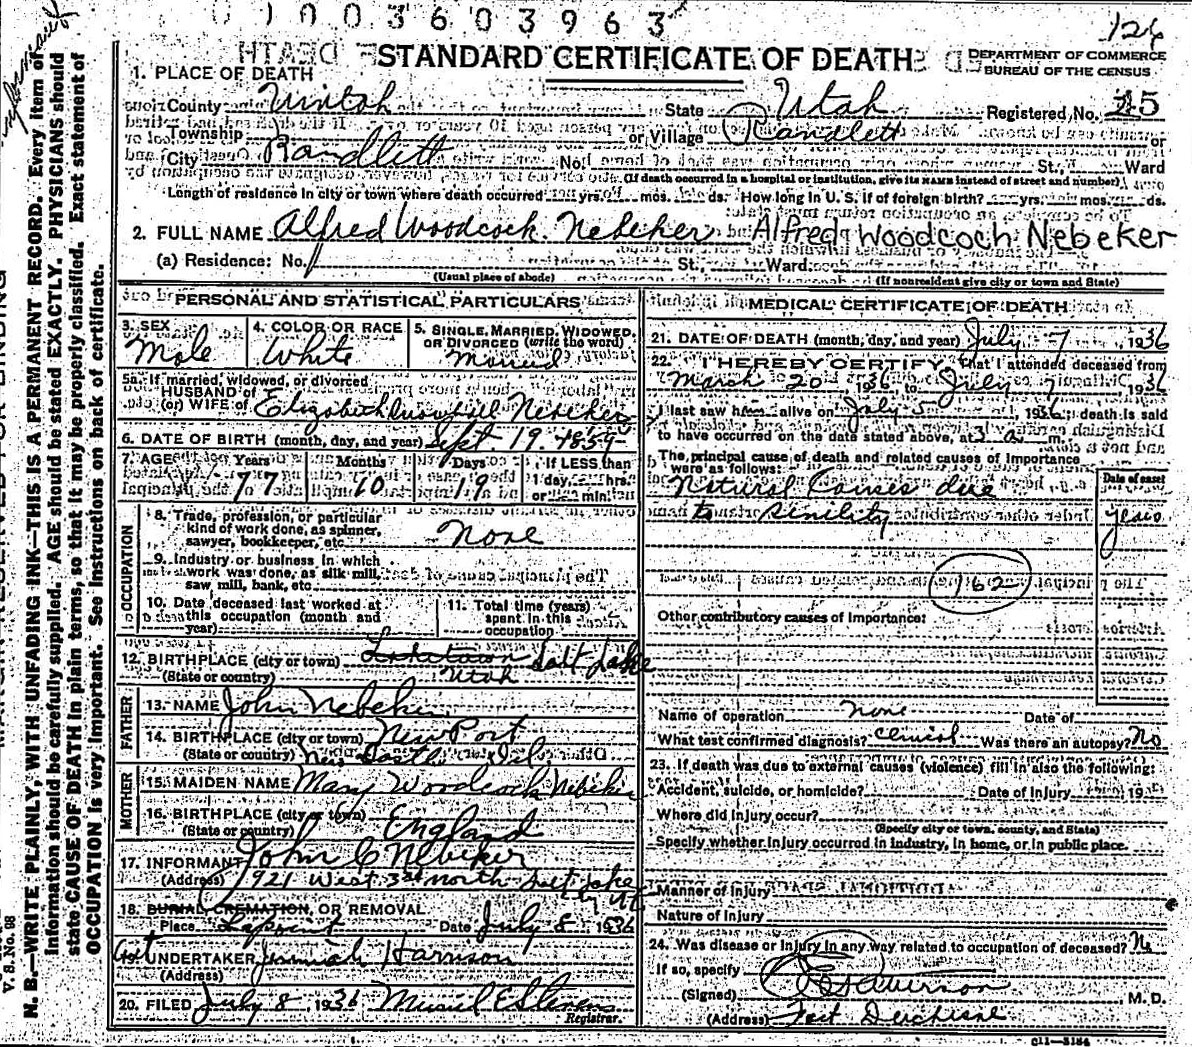 1003603963
126
STANDARD CERTIFICATE OF DEATH
DEPARTMENT OF COMMERCE
BUREAU OF THE CENSUS
1. PLACE OF DEATH
County Uintah State Utah Registered No. 15
Township or Village Randlett or
City Randlett No. St., Ward
(If death occurred in a hospital or institution, give its NAME instead of street and number)
Length of residence in city or town where death occurred yrs. mos. ds. How long in U. S. if of foreign birth? yrs. mos. ds.
2. FULL NAME Alfred Woodcock Nebeker Alfred Woodcoch Nebeker
(a) Residence: No. St., Ward.
(Usual place of abode) (If nonresident give city or town and State)
PERSONAL AND STATISTICAL PARTICULARS
3. SEX
Male
4. COLOR OR RACE
White
5. SINGLE, MARRIED, WIDOWED,
OR DIVORCED (write the word)
Married
5a. If married, widowed, or divorced
HUSBAND of
(or) WIFE of Elizabeth Nebeker
6. DATE OF BIRTH (month, day, and year) Sept. 19. 1859
7. AGE Years Months Days If LESS than
77 10 19 1 day, hrs.
or min.
OCCUPATION
8. Trade, profession, or particular
kind of work done, as spinner,
sawyer, bookkeeper, etc. None
9. Industry or business in which
work was done, as silk mill,
saw mill, bank, etc.
10. Date deceased last worked at
this occupation (month and
year)
11. Total time (years)
spent in this
occupation
12. BIRTHPLACE (city or town) Laketown Salt Lake
(State or country) Utah
FATHER
13. NAME John Nebeker
14. BIRTHPLACE (city or town) New Port
(State or country) Del.
MOTHER
15. MAIDEN NAME Mary Woodcock Nebeker
16. BIRTHPLACE (city or town)
(State or country) England
17. INFORMANT John C Nebeker
(Address) 921 West 3rd North Salt Lake
City Ut
18. BURIAL, CREMATION, OR REMOVAL
Place Date July 8 1936
19. UNDERTAKER Jermiah Harrison
(Address)
20. FILED July 8, 1936 Muriel E Stevens
Registrar.
MEDICAL CERTIFICATE OF DEATH
21. DATE OF DEATH (month, day, and year) July 7 1936
22. I HEREBY CERTIFY, that I attended deceased from
March 20 1936 to July 7 1936
I last saw him alive on July 5, 1936; death is said
to have occurred on the date stated above, at 3 a. m.
The principal cause of death and related causes of importance
were as follows:
Date of onset
Natural Causes due
to sinility years
162
Other contributory causes of importance:
Name of operation none Date of
What test confirmed diagnosis? clinical Was there an autopsy? No
23. If death was due to external causes (violence) fill in also the following:
Accident, suicide, or homicide? Date of injury 19
Where did injury occur?
(Specify city or town, county, and State)
Specify whether injury occurred in industry, in home, or in public place.
Manner of injury
Nature of injury
24. Was disease or injury in any way related to occupation of deceased? No
If so, specify
(Signed) M. D.
(Address) Fort Duchesne
C11—3184
V. S. No. 98
N. B.—WRITE PLAINLY, WITH UNFADING INK—THIS IS A PERMANENT RECORD. Every item of
information should be carefully supplied. AGE should be stated EXACTLY. PHYSICIANS should
state CAUSE OF DEATH in plain terms, so that it may be properly classified. Exact statement of
OCCUPATION is very important. See instructions on back of certificate.